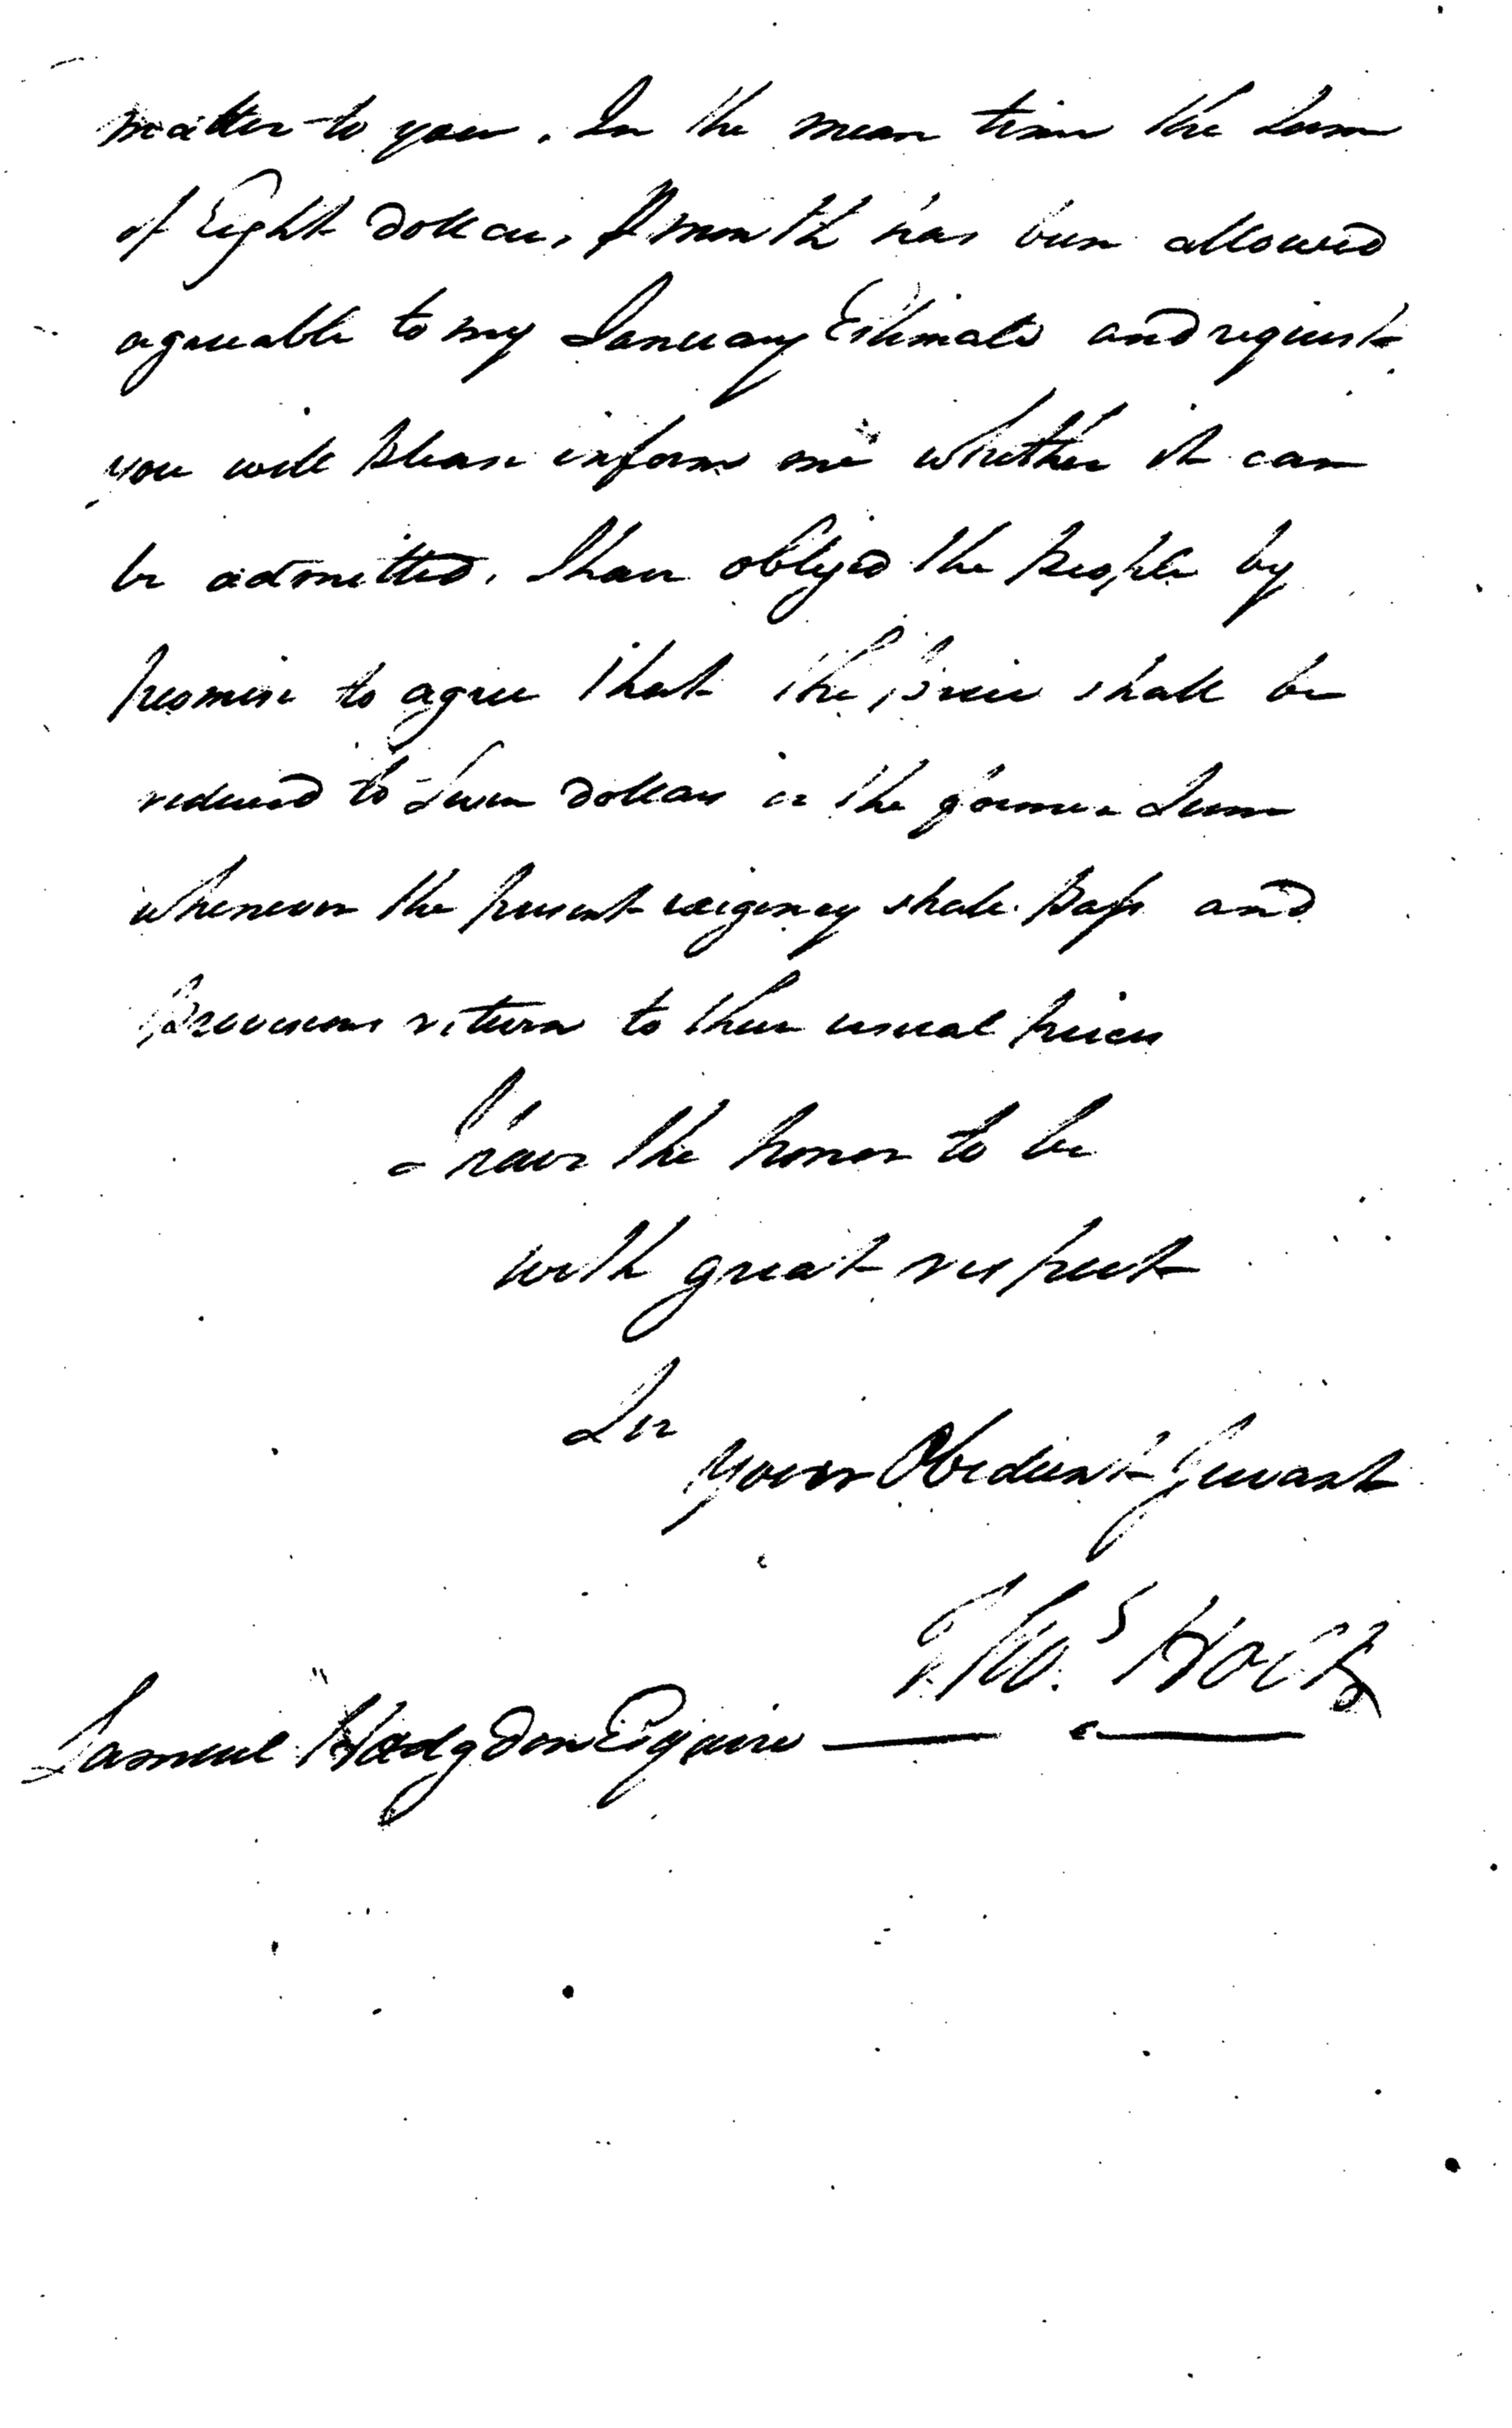 matter to you. In the mean time the Sum
of Eight dollars, P month has been allowed
agreeable to my January Estimate and request
you will please inform me whether it can
be admitted. I have obliged the people by
promise to agree that the price shall be
reduced to Seven dollars or the former Sum
whenever the present exigency shall pass and
Provisions return to their usual prices
I have the honor to be
with great respect
Sir
your Obedient Servant
Tho.s Hock
Samuel Hodgdon Esquire